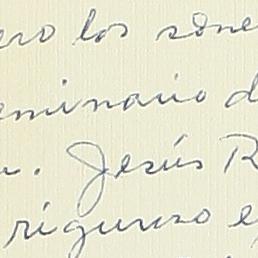 ero los sone
eminario d
u. Jesús R
riguroso e